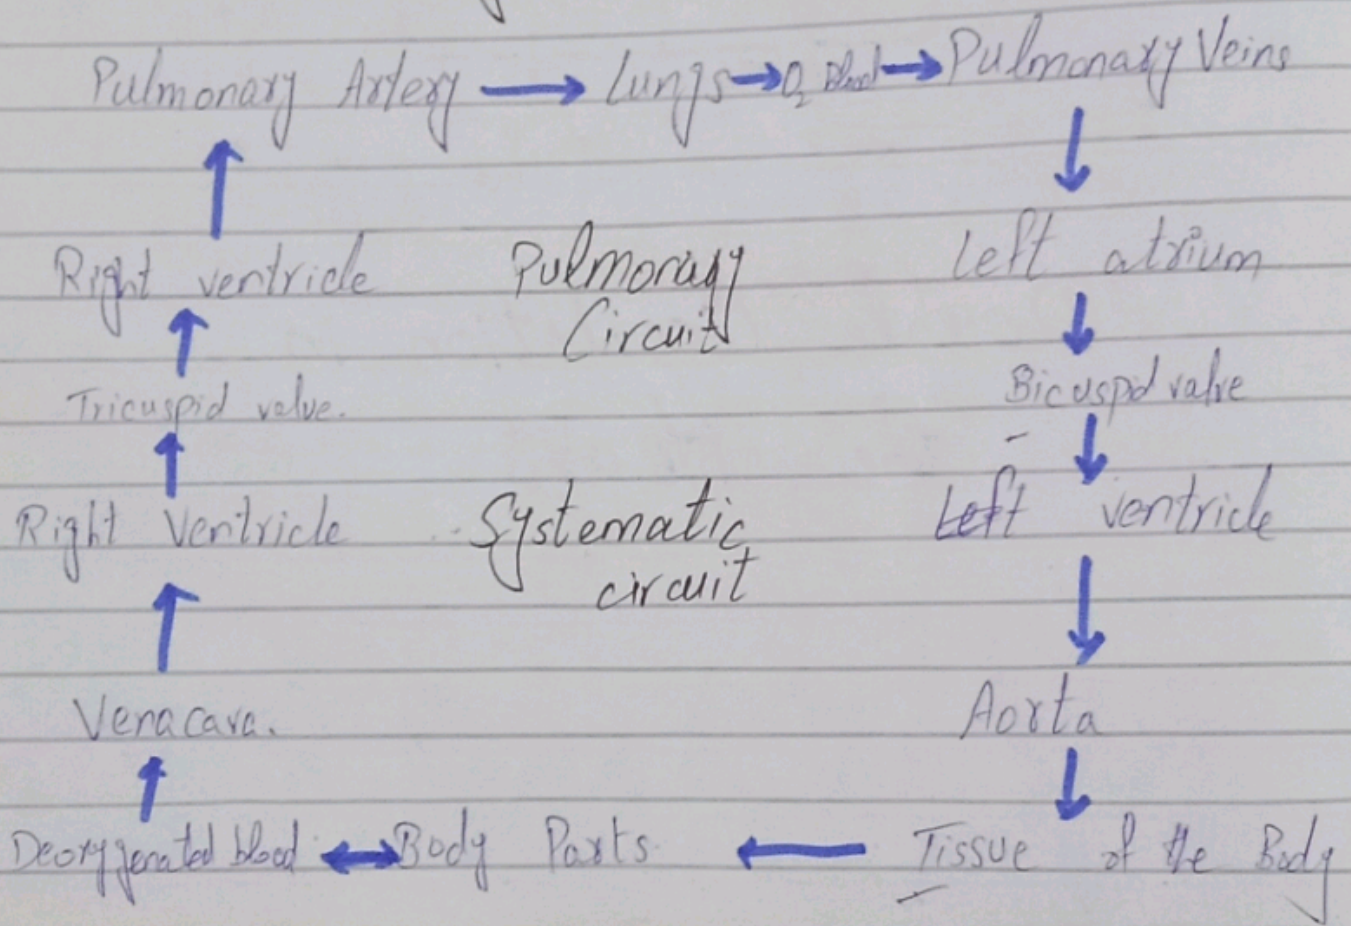 Pulmonary Artery → Lungs → O₂ blood → Pulmonary Veins
Right ventricle Pulmonary Left atrium
Circuit
Tricuspid valve. Bicuspid valve
Right Ventricle Systematic Left ventricle
circuit
Venacava. Aorta
Deoxygenated blood ↔ Body Parts ← Tissue of the Body